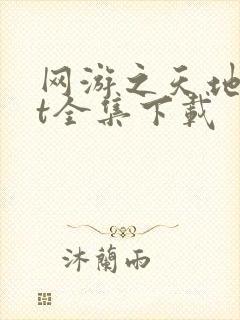 网游之天地
t全集下载
沐蘭雨